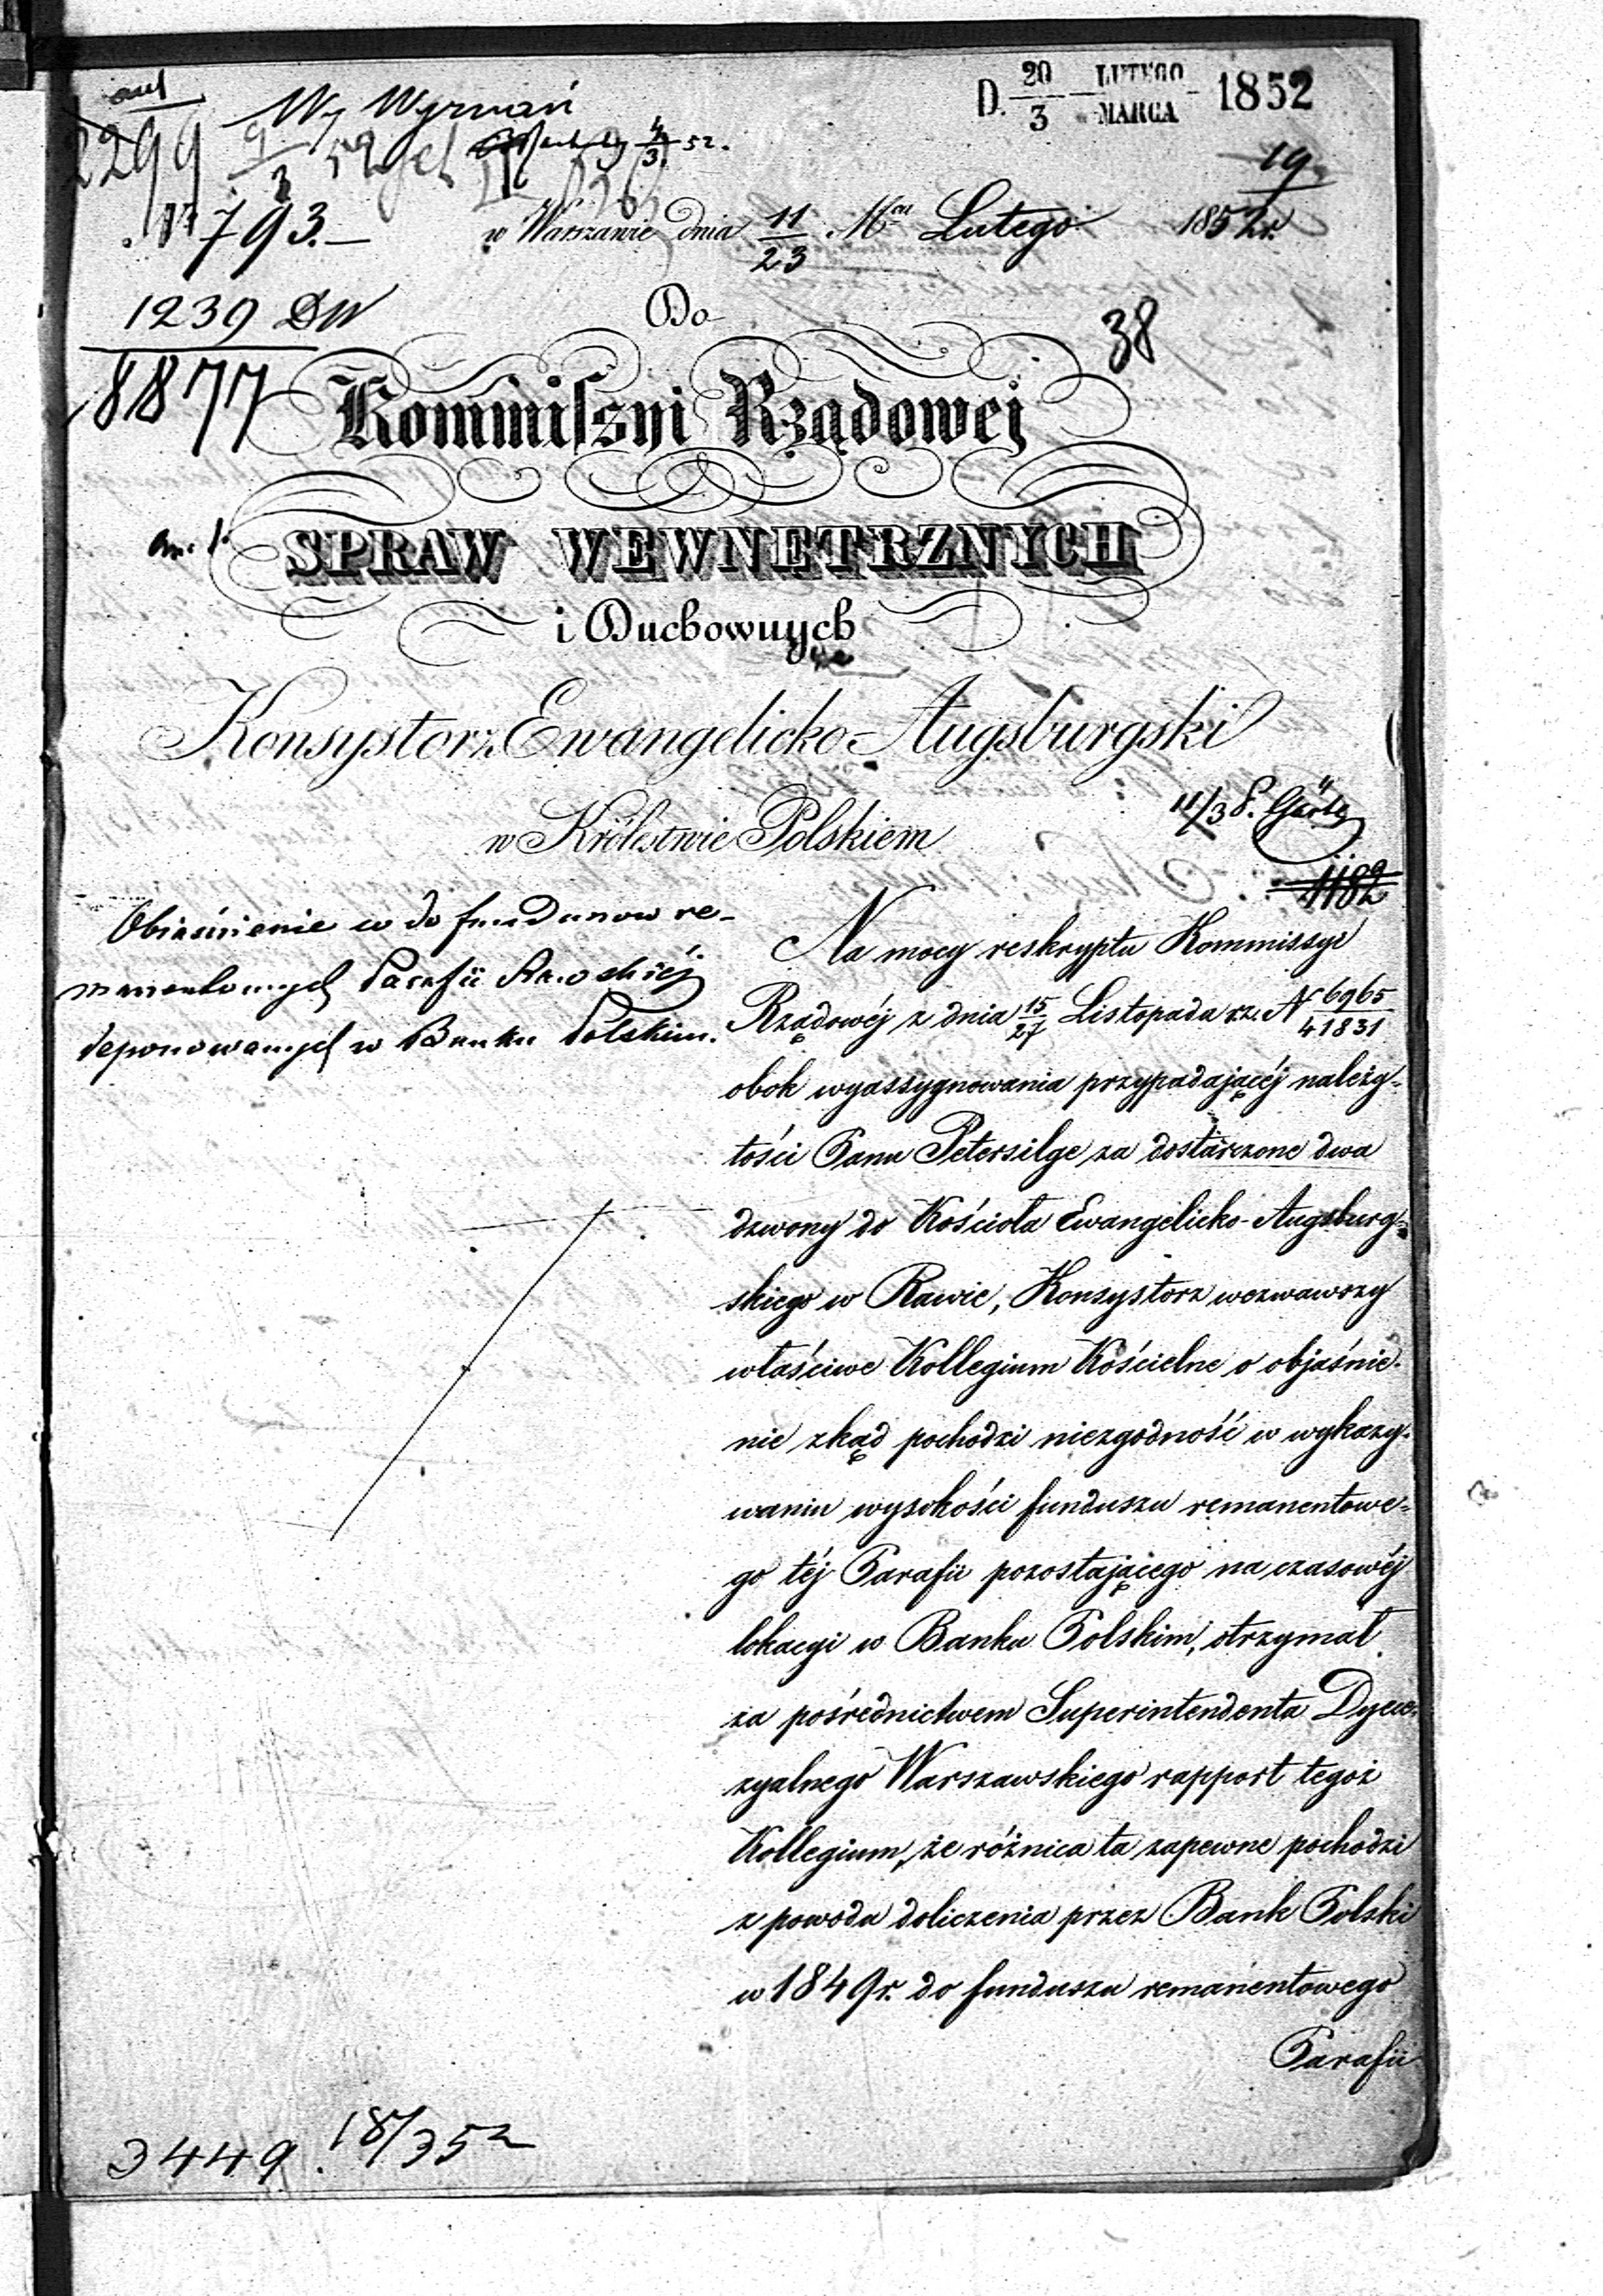 D. 20/3 LUTEGO/MARCA 1852
W. Wyrnań
2299 9/3 52
4/3 52.
19
N 793.—
w Warszawie dnia 11/23 Mca Lutego 1852 r.
1239 DW
8877
Do
38
Kommissyi Rządowej
an. 1.
SPRAW WEWNĘTRZNYCH
i Duchownych
Konsystorz Ewangelicko-Augsburgski
w Królestwie Polskiem
11/3
1182
Obiaśnienie w do funduszow re-
manentowych Parafii Rawskiéj
deponowanych w Banku Polskim.
Na mocy reskryptu Kommissyi
Rządowéj z dnia 15/27 Listopada rz. N 6965/41831
obok wyassygnowania przypadającéj należy-
tości Panu Petersilge za dostarczone dwa
dzwony do Kościoła Ewangelicko-Augsburg-
skiego w Rawie, Konsystorz wezwawszy
właściwe Kollegium Kościelne o objaśnie-
nie zkąd pochodzi niezgodność w wykazy-
waniu wysokości funduszu remanentowe-
go téj Parafii pozostającego na czasowéj
lokacyi w Banku Polskim, otrzymał
za pośrednictwem Superintendenta Dyece-
zyalnego Warszawskiego rapport tegoż
Kollegium, że różnica ta zapewne pochodzi
z powodu doliczenia przez Bank Polski
w 1849 r. do funduszu remanentowego
Parafii
3449. 18/3 52